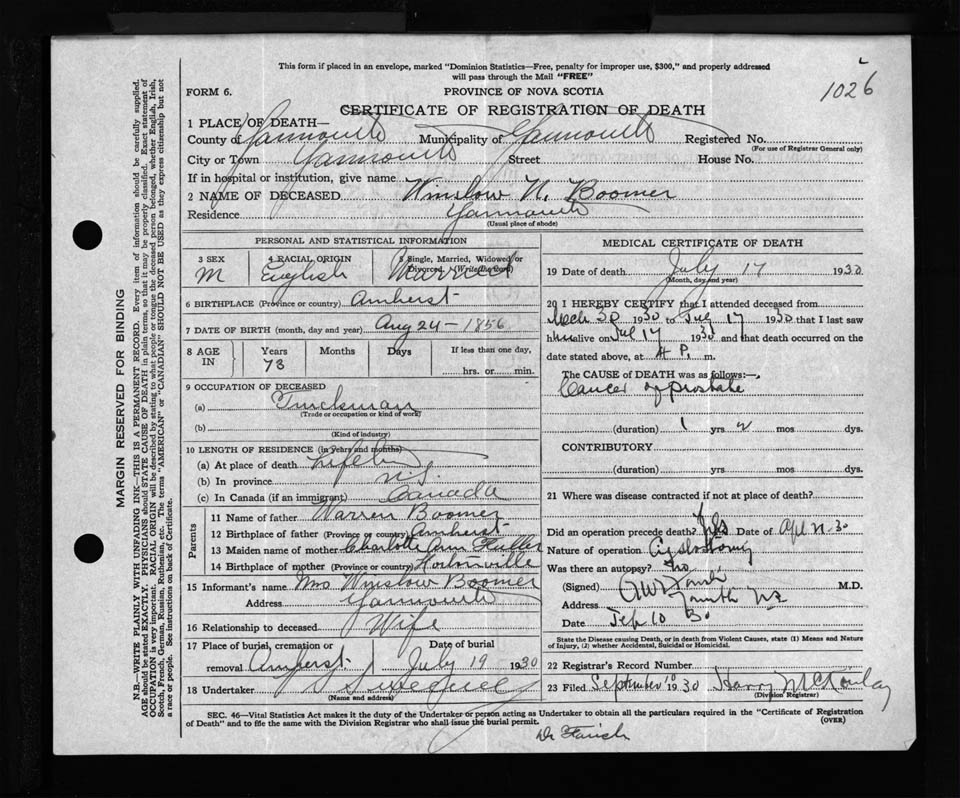 1026
This form if placed in an envelope, marked "Dominion Statistics—Free, penalty for improper use, $300," and properly addressed
will pass through the Mail "FREE"
FORM 6.
PROVINCE OF NOVA SCOTIA
CERTIFICATE OF REGISTRATION OF DEATH
1 PLACE OF DEATH—
County of Yarmouth Municipality of Yarmouth Registered No.
(For use of Registrar General only)
City or Town Yarmouth Street House No.
If in hospital or institution, give name
2 NAME OF DECEASED Winslow N. Boomer
Residence Yarmouth
(Usual place of abode)
PERSONAL AND STATISTICAL INFORMATION
3 SEX 4 RACIAL ORIGIN 5 Single, Married, Widowed or
Divorced. (Write the word)
M English Married
6 BIRTHPLACE (Province or country) Amherst
7 DATE OF BIRTH (month, day and year) Aug 24 - 1856
8 AGE IN Years Months Days If less than one day,
73 hrs. or min.
9 OCCUPATION OF DECEASED
(a) Truckman
(Trade or occupation or kind of work)
(b)
(Kind of industry)
10 LENGTH OF RESIDENCE (in years and months)
(a) At place of death Life
(b) In province N.S.
(c) In Canada (if an immigrant) Canada
Parents
11 Name of father Warren Boomer
12 Birthplace of father (Province or country) Amherst
13 Maiden name of mother Charlotte Ann
14 Birthplace of mother (Province or country)
15 Informant's name Mrs Winslow Boomer
Address Yarmouth
16 Relationship to deceased Wife
17 Place of burial, cremation or removal Amherst Date of burial July 19 1930
18 Undertaker
(Name and address)
MEDICAL CERTIFICATE OF DEATH
19 Date of death July 17 1930
(Month, day and year)
20 I HEREBY CERTIFY that I attended deceased from
Mch 30 1930 to July 17 1930 that I last saw
him alive on Jul 17 1930 and that death occurred on the
date stated above, at 4 P. m.
The CAUSE OF DEATH was as follows:—
Cancer of prostate
(duration) 1 yrs 2 mos dys.
CONTRIBUTORY
(duration) yrs. mos. dys.
21 Where was disease contracted if not at place of death?
Did an operation precede death? Yes Date of Apl 30
Nature of operation Cystostomy
Was there an autopsy? No
(Signed) M.D.
Address Yarmouth N.S.
Date Sep 10 30
State the Disease causing Death, or in death from Violent Causes, state (1) Means and Nature
of Injury, (2) whether Accidental, Suicidal or Homicidal.
22 Registrar's Record Number
23 Filed September 10 1930 Harry
(Division Registrar)
SEC. 46—Vital Statistics Act makes it the duty of the Undertaker or person acting as Undertaker to obtain all the particulars required in the "Certificate of Registration
of Death" and to file the same with the Division Registrar who shall issue the burial permit. (OVER)
MARGIN RESERVED FOR BINDING
N.B.—WRITE PLAINLY WITH UNFADING INK—THIS IS A PERMANENT RECORD. Every item of information should be carefully supplied.
AGE should be stated EXACTLY. PHYSICIANS should STATE CAUSE OF DEATH in plain terms so that it may be properly classified. Exact statement of
OCCUPATION is very important. RACIAL ORIGIN will be described by stating to what people or tongue the deceased person belonged, whether English, Irish,
Scotch, French, German, Russian, Ruthenian, etc. The terms "AMERICAN" or "CANADIAN" SHOULD NOT BE USED as they express citizenship but not
a race or people. See instructions on back of Certificate.